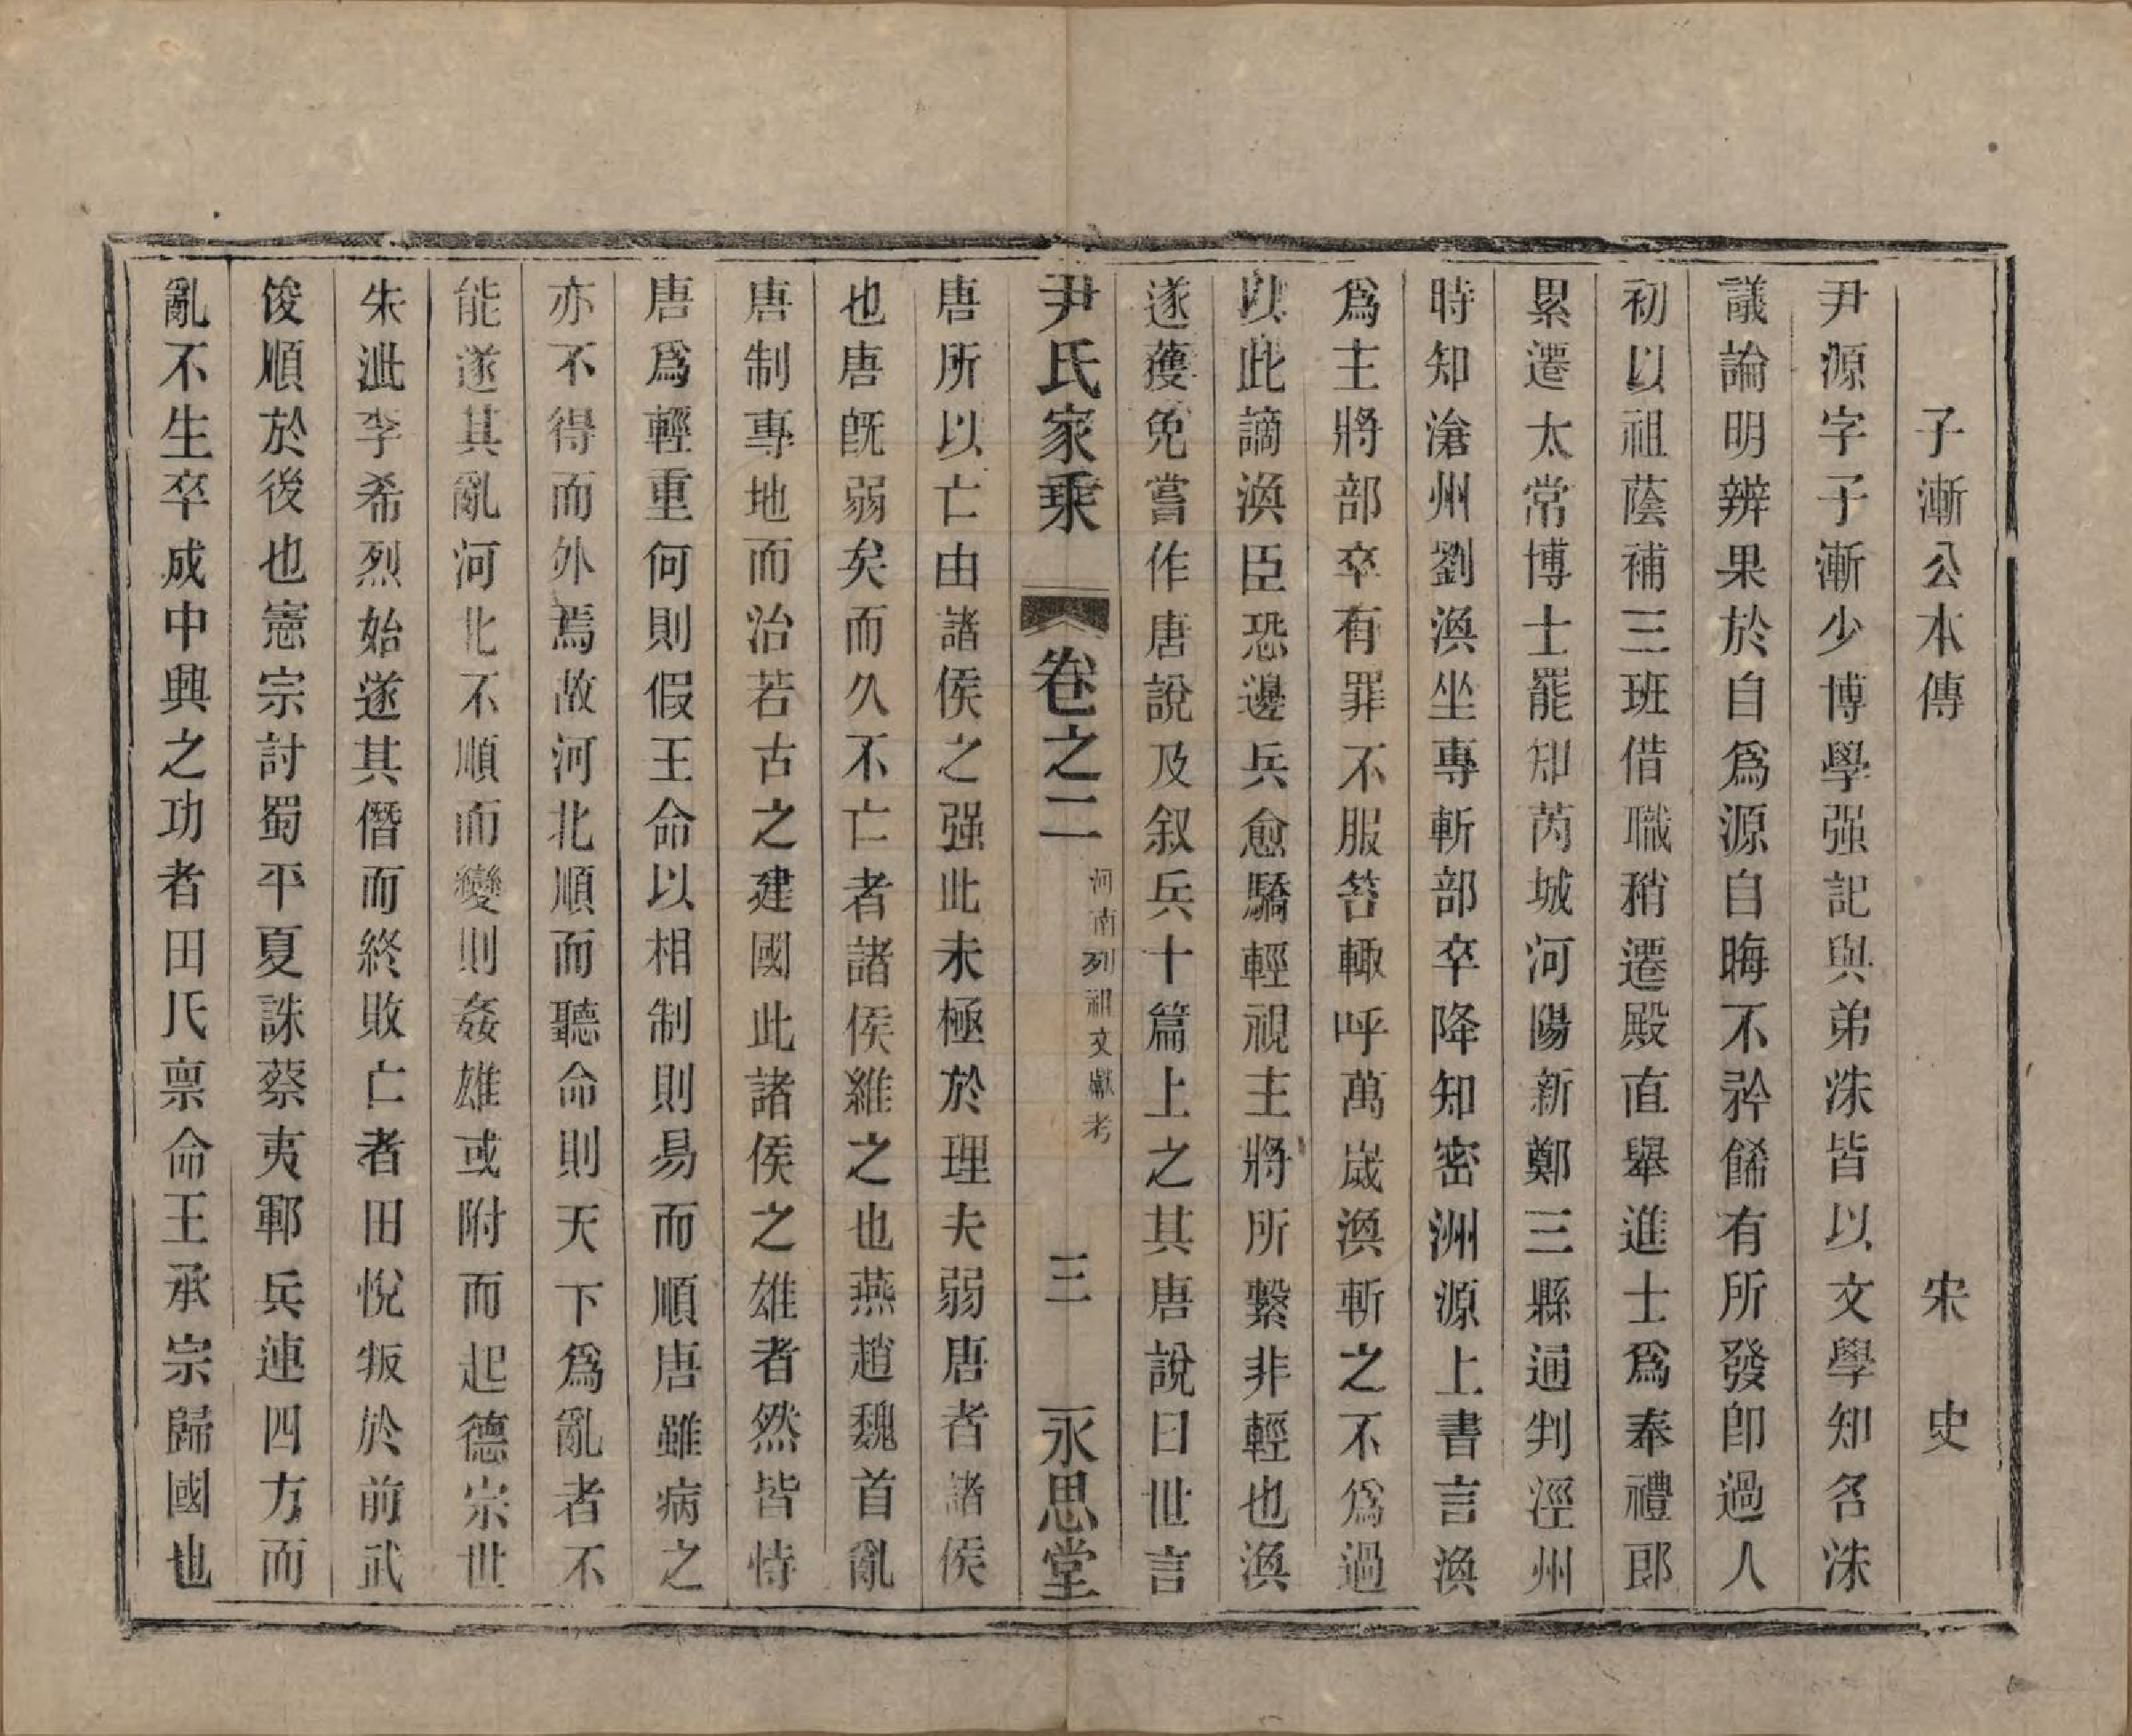 子漸公本傳　宋史
尹源字子漸少博學强記與弟洙皆以文學知名洙
議論明辨果於自爲源自晦不矜餙有所發卽過人
初以祖蔭補三班借職稍遷殿直舉進士爲奉禮郎
累遷太常博士罷知芮城河陽新鄭三縣通判涇州
時知滄州劉渙坐專斬部卒降知密洲源上書言渙
爲主將部卒有罪不服笞輙呼萬歲渙斬之不爲過
以此謫渙臣恐邊兵愈驕輕視主將所繫非輕也渙
遂獲免嘗作唐說及叙兵十篇上之其唐說曰世言
尹氏家乘　卷之二　河南列祖文獻考　三　永思堂
唐所以亡由諸侯之强此未極於理夫弱唐者諸侯
也唐旣弱矣而久不亡者諸侯維之也燕趙魏首亂
唐制專地而治若古之建國此諸侯之雄者然皆恃
唐爲輕重何則假王命以相制則易而順唐雖病之
亦不得而外焉故河北順而聽命則天下爲亂者不
能遂其亂河北不順而變則姦雄或附而起德宗世
朱泚李希烈始遂其僭而終敗亡者田悅叛於前武
俊順於後也憲宗討蜀平夏誅蔡夷鄆兵連四方而
亂不生卒成中興之功者田氏禀命王承宗歸國也